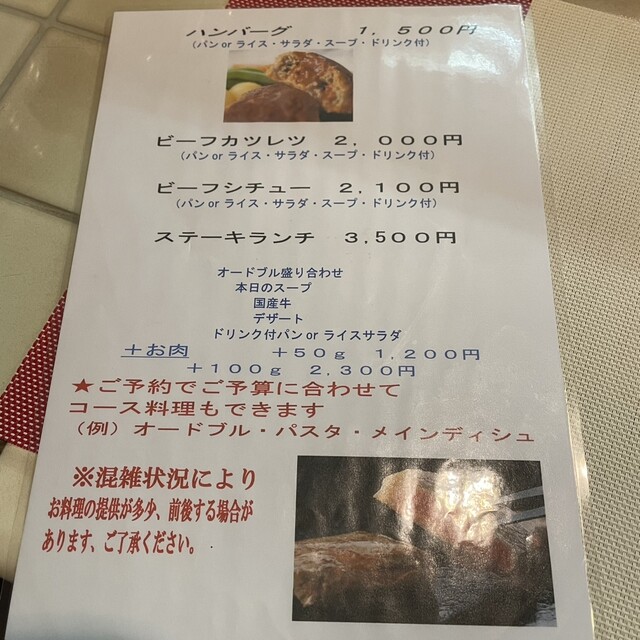 ハンバーグ　１，５００円
（パン or ライス・サラダ・スープ・ドリンク付）
ビーフカツレツ　２，０００円
（パン or ライス・サラダ・スープ・ドリンク付）
ビーフシチュー　２,１００円
（パン or ライス・サラダ・スープ・ドリンク付）
ステーキランチ　３,５００円
オードブル盛り合わせ
本日のスープ
国産牛
デザート
ドリンク付パン or ライスサラダ
＋お肉　＋５０ｇ　１,２００円
＋１００ｇ　２,３００円
★ご予約でご予算に合わせて
コース料理もできます
（例）オードブル・パスタ・メインディシュ
※混雑状況により
お料理の提供が多少、前後する場合が
あります、ご了承ください。